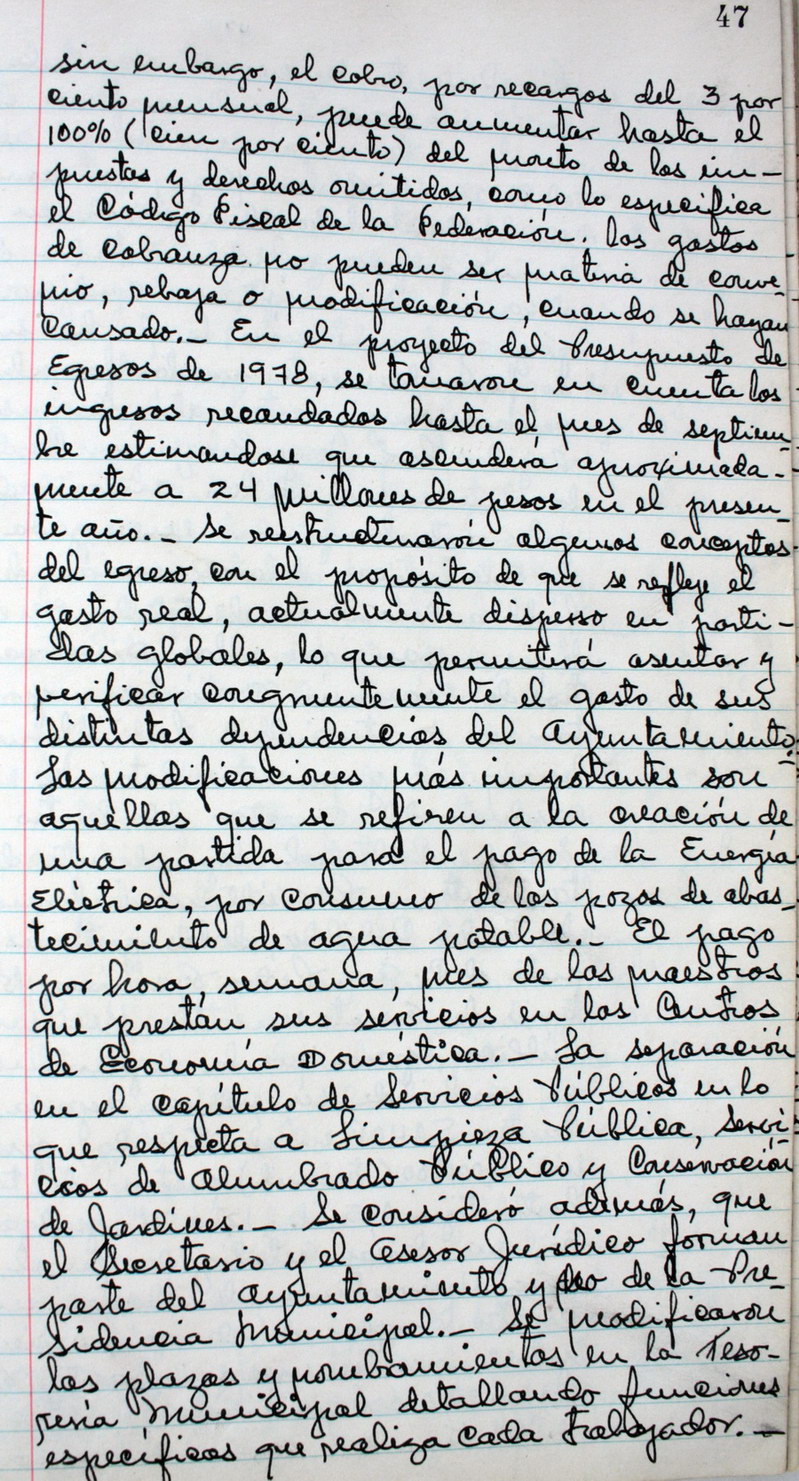 47
sin embargo, el cobro, por recargos del 3 por
ciento mensual, puede aumentar hasta el
100% (cien por ciento) del monto de los im-
puestos y derechos omitidos, como lo especifica
el Código Fiscal de la Federación. los gastos
de cobranza no pueden ser materia de conve-
nio, rebaja o modificación, cuando se hayan
causado.- En el proyecto del Presupuesto de
Egresos de 1978, se tomaron en cuenta los
ingresos recaudados hasta el mes de septiem-
bre estimandose que ascenderá aproximada-
mente a 24 Millones de pesos en el presen-
te año.- Se reestructuraron algunos conceptos
del egreso, con el propósito de que se refleje el
gasto real, actualmente disperso en parti-
das globales, lo que permitirá asentar y
verificar congruentemente el gasto de sus
distintas dependencias del Ayuntamiento.-
Las modificaciones más importantes son
aquellas que se refiren a la creación de
una partida para el pago de la Energía
Eléctrica, por consumo de los pozos de abas-
tecimiento de agua potable.- El pago
por hora, semana, mes de los maestros
que prestan sus servicios en los Centros
de Economía Doméstica.- La separación
en el capítulo de Servicios Públicos en lo
que respecta a Limpieza Pública, Servi-
cios de Alumbrado Público y Conservación
de Jardines.- Se consideró además, que
el Secretario y el Asesor Jurídico forman
parte del Ayuntamiento y no de la Pre-
sidencia Municipal.- Se modificaron
las plazas y nombramientos en la Teso-
rería Municipal detallando funciones
específicas que realiza cada trabajador.-